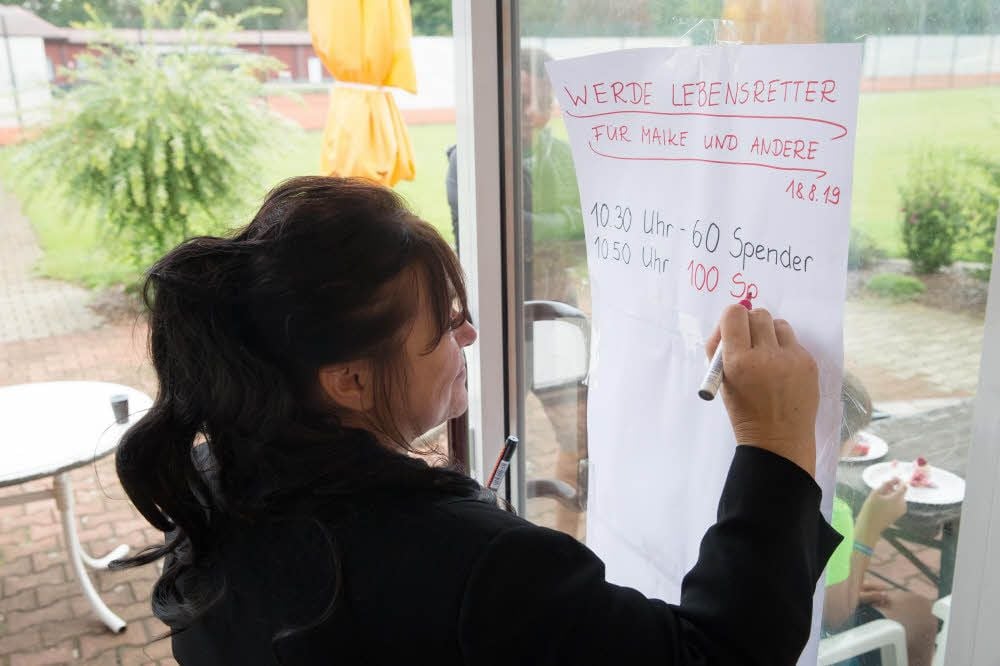 WERDE LEBENSRETTER
FÜR MAIKE UND ANDERE
18.8.19
10.30 Uhr - 60 Spender
10.50 Uhr 100 Sp